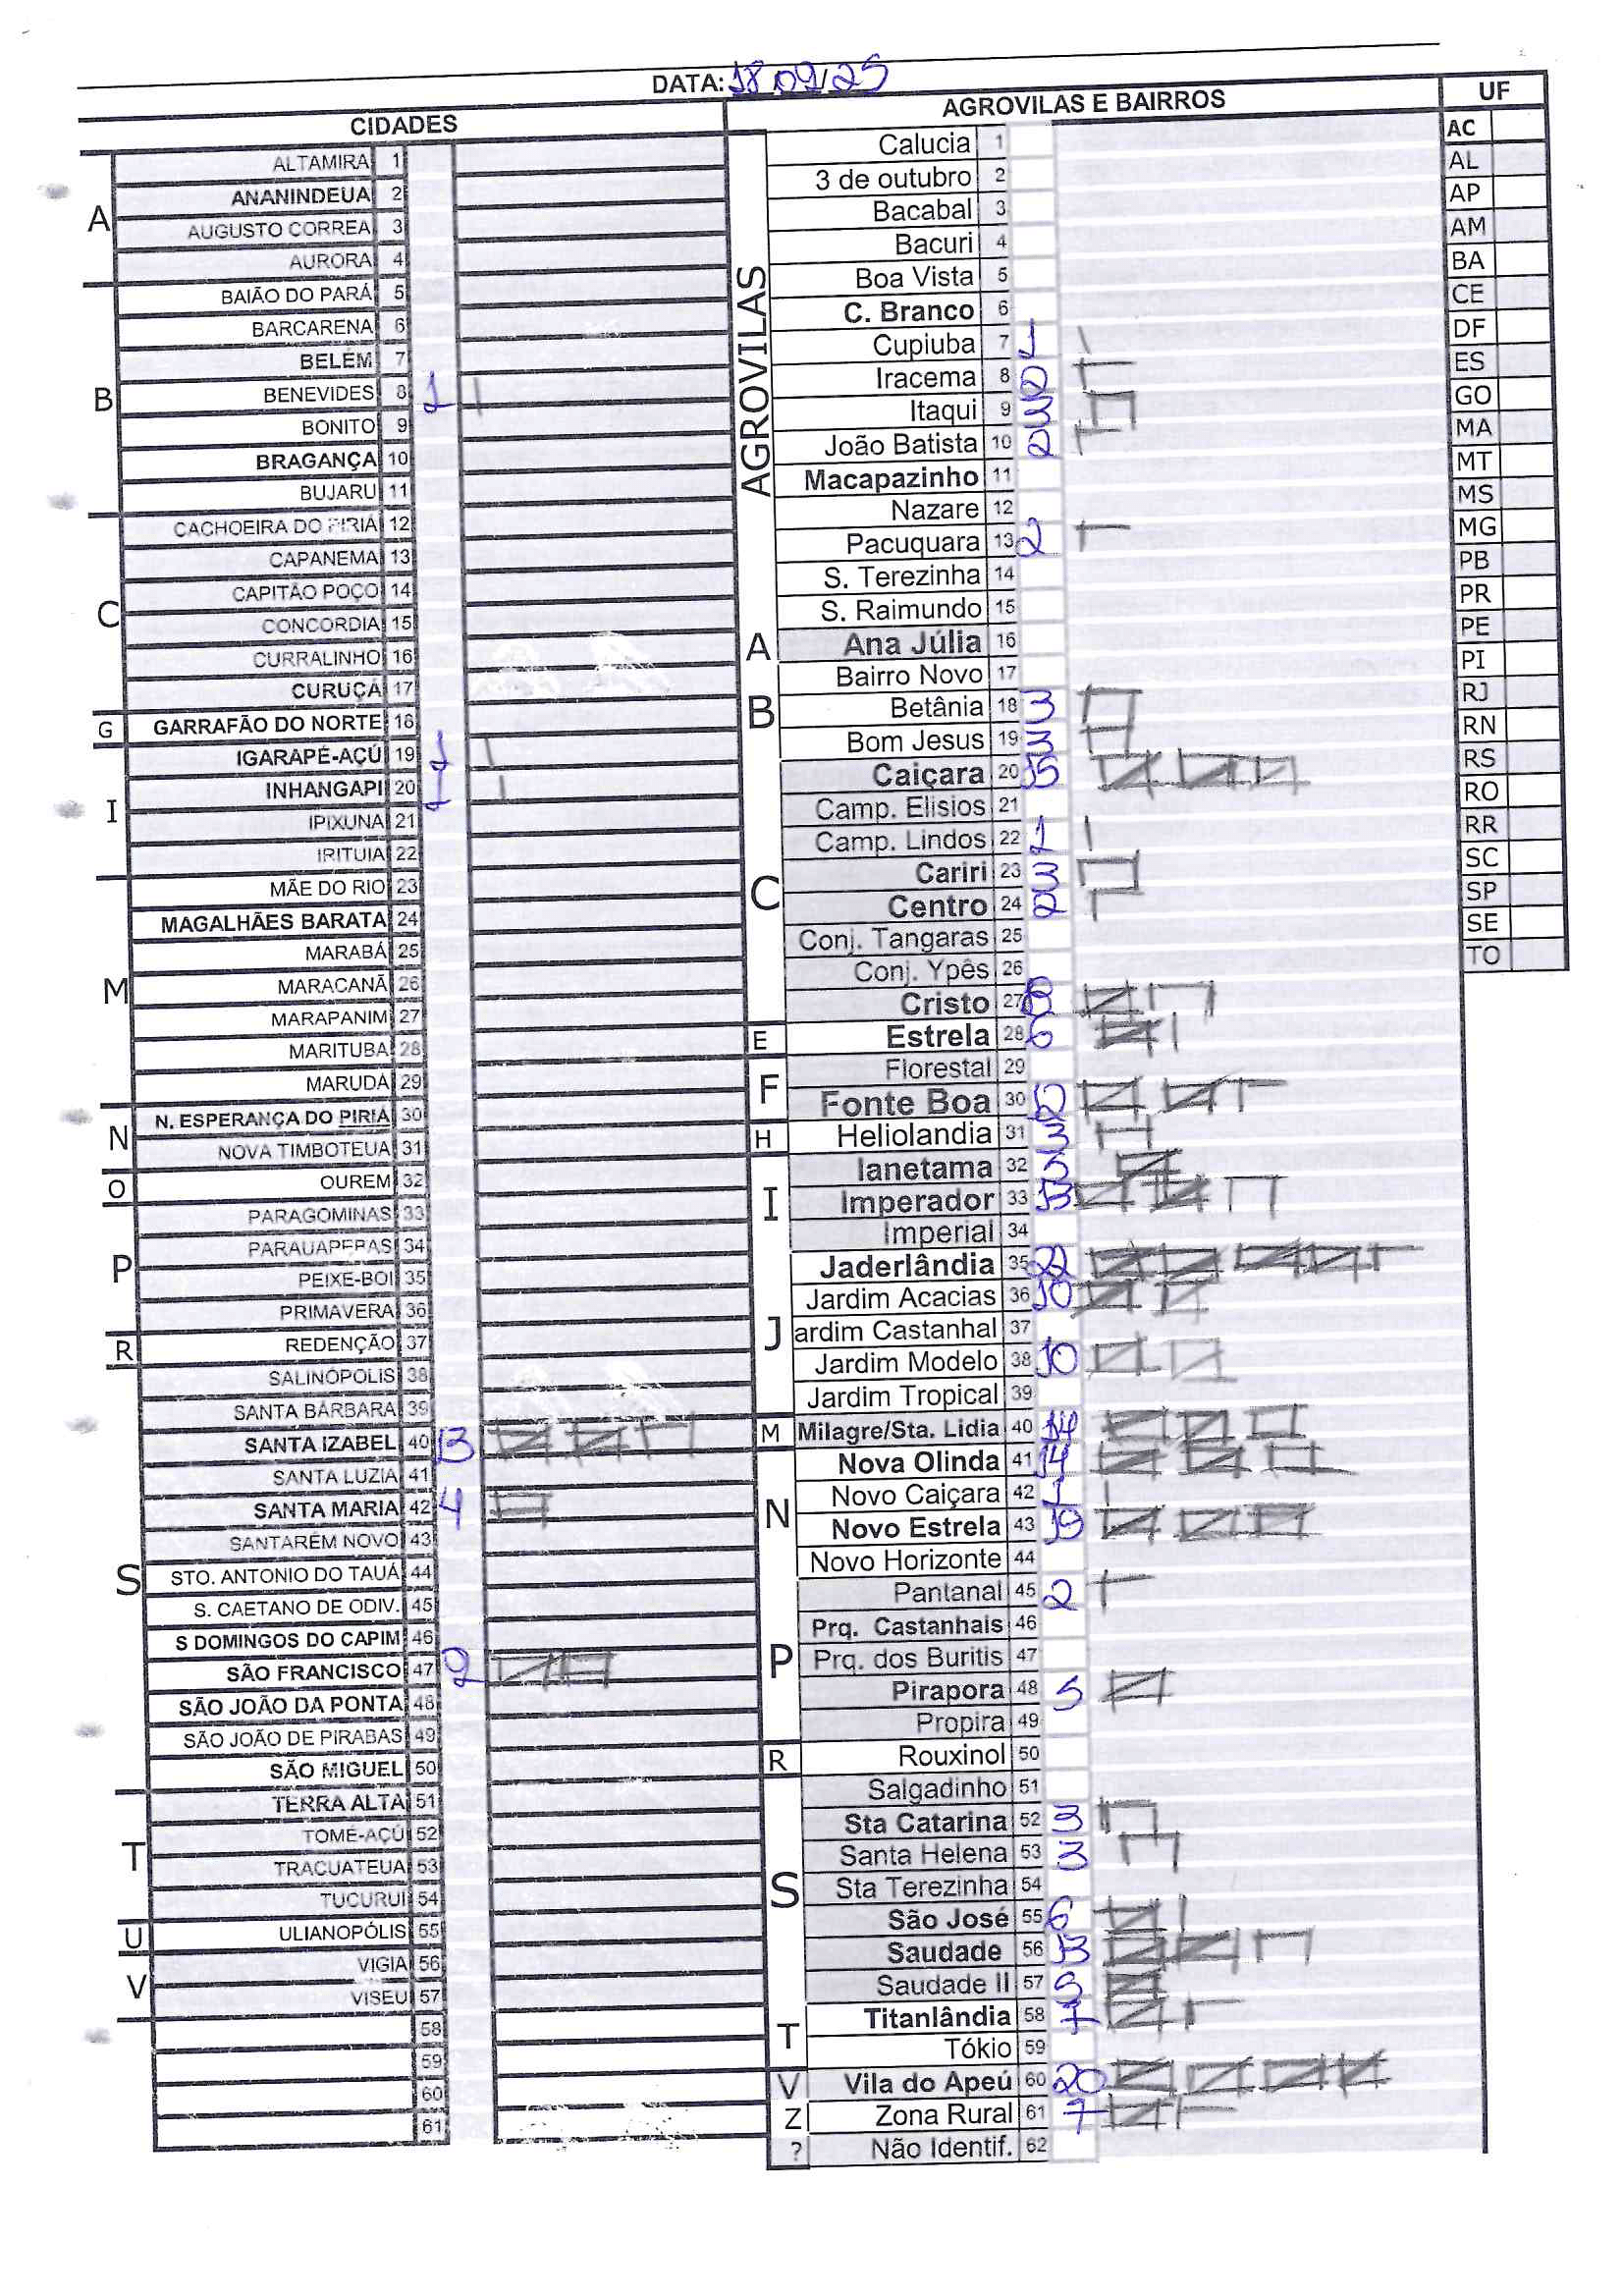 DATA: 18/09/25
CIDADES
A
ALTAMIRA 1
ANANINDEUA 2
AUGUSTO CORREA 3
AURORA 4
B
BAIÃO DO PARÁ 5
BARCARENA 6
BELÉM 7
BENEVIDES 8 1
BONITO 9
BRAGANÇA 10
BUJARU 11
C
CACHOEIRA DO PIRIÁ 12
CAPANEMA 13
CAPITÃO POÇO 14
CONCORDIA 15
CURRALINHO 16
CURUÇÁ 17
G
GARRAFÃO DO NORTE 18
I
IGARAPÉ-AÇÚ 19 1
INHANGAPI 20 1
IPIXUNA 21
IRITUIA 22
M
MÃE DO RIO 23
MAGALHÃES BARATA 24
MARABÁ 25
MARACANÃ 26
MARAPANIM 27
MARITUBA 28
MARUDÁ 29
N
N. ESPERANÇA DO PIRIÁ 30
NOVA TIMBOTEUA 31
O
OUREM 32
P
PARAGOMINAS 33
PARAUAPEBAS 34
PEIXE-BOI 35
PRIMAVERA 36
R
REDENÇÃO 37
S
SALINÓPOLIS 38
SANTA BÁRBARA 39
SANTA IZABEL 40 13
SANTA LUZIA 41
SANTA MARIA 42 4
SANTARÉM NOVO 43
STO. ANTONIO DO TAUÁ 44
S. CAETANO DE ODIV. 45
S DOMINGOS DO CAPIM 46
SÃO FRANCISCO 47 9
SÃO JOÃO DA PONTA 48
SÃO JOÃO DE PIRABAS 49
SÃO MIGUEL 50
T
TERRA ALTA 51
TOMÉ-AÇÚ 52
TRACUATEUA 53
TUCURUI 54
U
ULIANOPÓLIS 55
V
VIGIA 56
VISEU 57
58
59
60
61
AGROVILAS E BAIRROS
AGROVILAS
Calucia 1
3 de outubro 2
Bacabal 3
Bacuri 4
Boa Vista 5
C. Branco 6
Cupiuba 7 1
Iracema 8 2
Itaqui 9 3
João Batista 10 2
Macapazinho 11
Nazare 12
Pacuquara 13 2
S. Terezinha 14
S. Raimundo 15
A
Ana Júlia 16
B
Bairro Novo 17
Betânia 18 3
Bom Jesus 19 3
C
Caiçara 20 15
Camp. Elisios 21
Camp. Lindos 22 1
Cariri 23 3
Centro 24 2
Conj. Tangaras 25
Conj. Ypês 26
Cristo 27 8
E
Estrela 28 6
F
Florestal 29
Fonte Boa 30 12
H
Heliolandia 31 3
I
Ianetama 32 5
Imperador 33 13
Imperial 34
J
Jaderlândia 35 22
Jardim Acacias 36 10
ardim Castanhal 37
Jardim Modelo 38 10
Jardim Tropical 39
M
Milagre/Sta. Lidia 40 14
N
Nova Olinda 41 14
Novo Caiçara 42 1
Novo Estrela 43
Novo Horizonte 44
P
Pantanal 45 2
Prq. Castanhais 46
Prq. dos Buritis 47
Pirapora 48 5
Propira 49
R
Rouxinol 50
S
Salgadinho 51
Sta Catarina 52 3
Santa Helena 53 3
Sta Terezinha 54
São José 55 6
Saudade 56 13
Saudade II 57 5
T
Titanlândia 58 7
Tókio 59
V
Vila do Apeú 60 20
Z
Zona Rural 61 7
?
Não Identif. 62
UF
AC
AL
AP
AM
BA
CE
DF
ES
GO
MA
MT
MS
MG
PB
PR
PE
PI
RJ
RN
RS
RO
RR
SC
SP
SE
TO